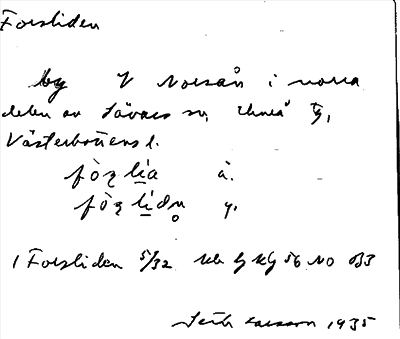 Forsliden
by V Norsån i norra
delen av Lövars sn, Umeå tg,
Västerbottens l.
fòʒ lía å.
fòʒ lídṇ y.
1 Forsliden 5/32 kg 56 NO B3
Larsson 1935